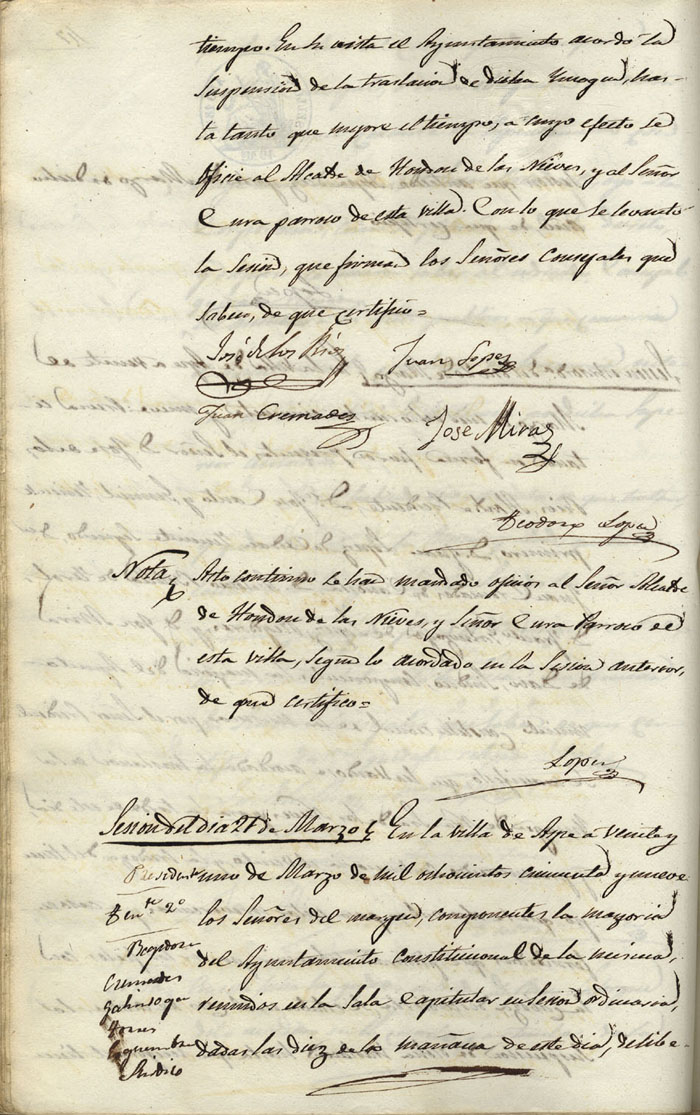 tiempo. En su vista el Ayuntamiento acordó la
suspension de la traslacion de dicha Ymagen, has-
ta tanto que mejore el tiempo, a cuyo efecto se
oficie al Alcalde de Hondon de las Nieves, y al Señor
Cura parroco de esta villa. Con lo que se levantó
la Sesion, que firman los Señores Concejales que
saben, de que certifico=
José de los Rios Juan Lopez
Juan Cremades Jose Miras
Teodoro Lopez
Nota Acto continuo se han mandado oficios al Señor Alcalde
de Hondon de las Nieves, y Señor Cura Parroco de
esta villa, segun lo acordado en la Sesion anterior,
de que certifico=
Lopez
Sesion del dia 21 de Marzo En la villa de Aspe a veinte y
Presidente uno de Marzo de mil ochocientos cincuenta y nueve
Tente 2º los Señores del margen, componentes la mayoria
Regidores del Ayuntamiento constitucional de la misma,
Cremades
reunidos en la Sala Capitular en Sesion ordinaria,
dadas las diez de la mañana de este dia, delibe-
Sindico